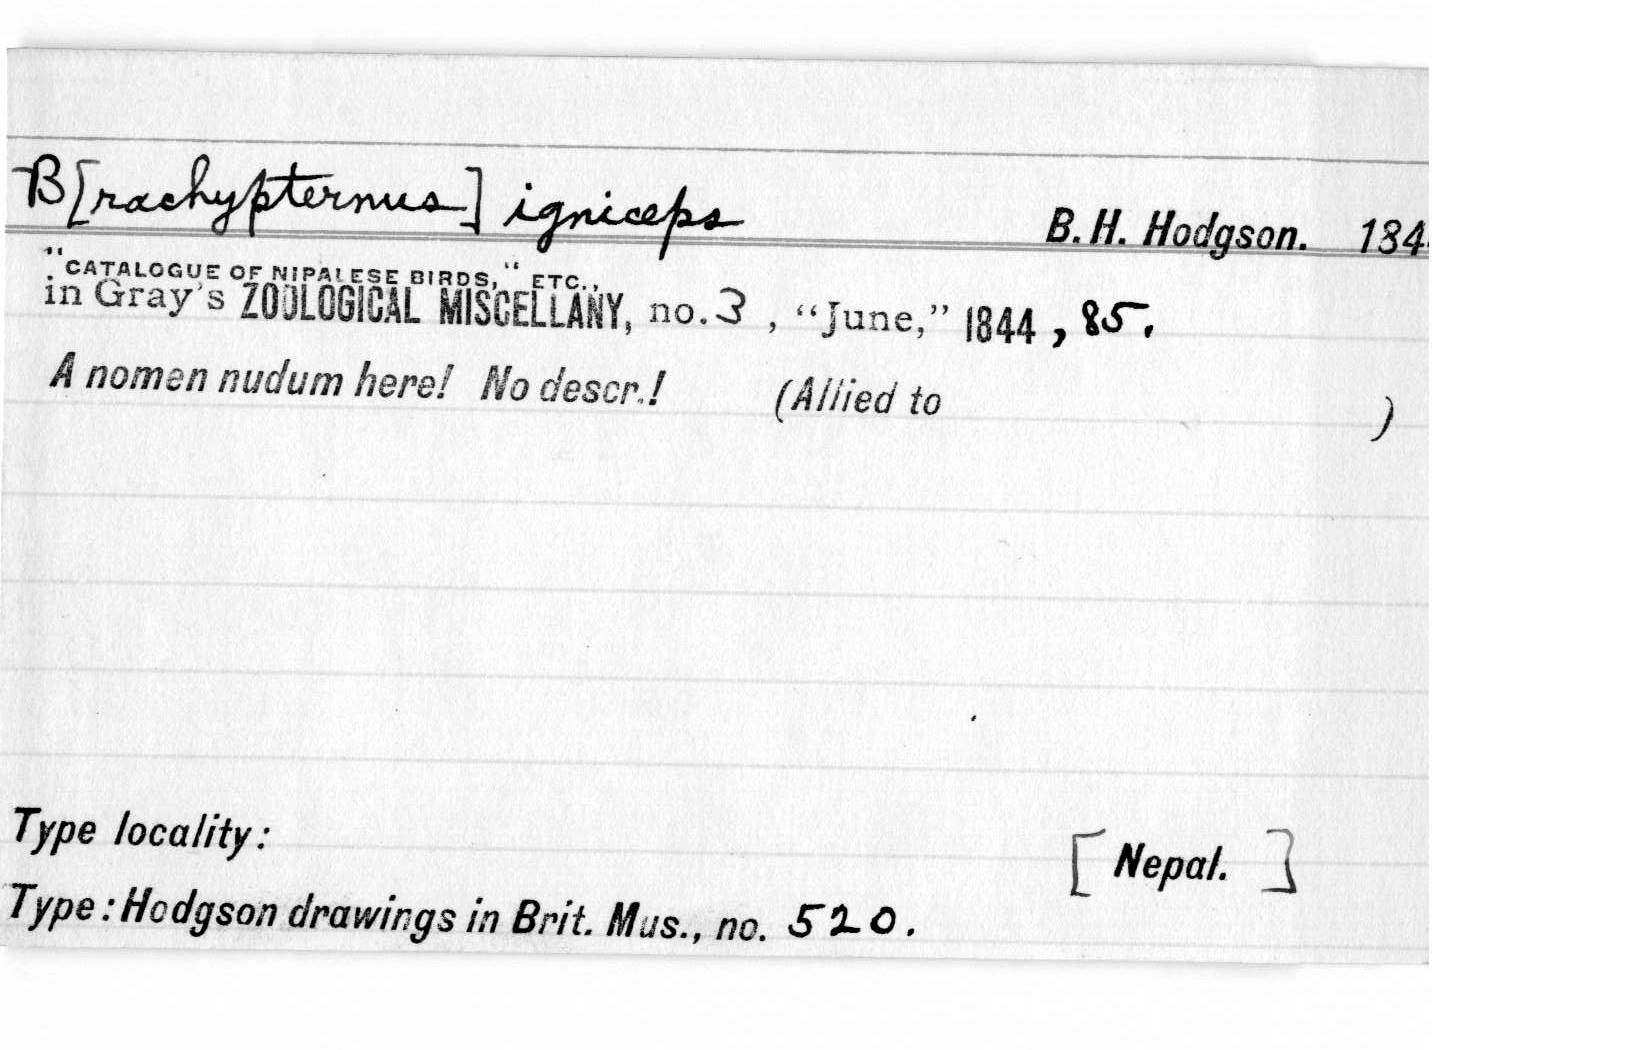 B[rachypternus] igniceps B. H. Hodgson. 184
"CATALOGUE OF NIPALESE BIRDS," ETC.,
in Gray's ZOOLOGICAL MISCELLANY, no. 3, "June," 1844, 85.
A nomen nudum here! No descr.! (Allied to )
Type locality: [Nepal.]
Type: Hodgson drawings in Brit. Mus., no. 520.